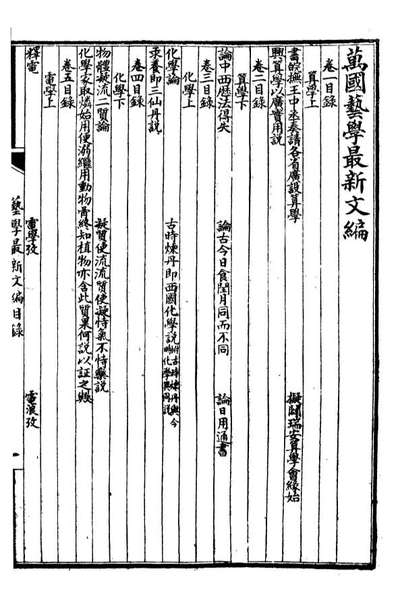 萬國藝學最新文編
卷一目錄
算學上
書皖撫王中丞奏請各省廣設算學 擬關瑞安算學會緣始
興算學以廣實用說
卷二目錄
算學下
論中西歷法得失 論古今日食閏月同而不同 論日用通書
卷三目錄
化學上
化學論 古時煉丹即西國化學說 辨古時煉丹與今時化學異同說
汞養即三仙丹說
卷四目錄
化學下
物體凝流二質論 凝質使流流質使凝恃氣不恃藥說
化學家取燐始用便溺繼用動物骨終知植物亦含此質果何說以証之歟
卷五目錄
電學上
釋電 電學攷 電浪攷
藝學最新文編目錄